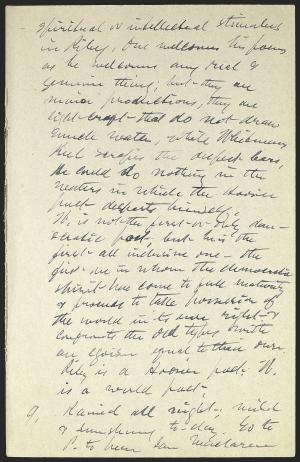 spiritual or intellectual stimulus
in Riley, one welcomes his poems
as he welcomes any real &
genuine thing; but they are
minor productions, they are
light-craft that do not draw
much water, while Whitman's
keel scrapes the deepest bars,
He could do nothing in the
waters in which the Hoosier
poet disports himself.
W. is not the first or only dem-
ocratic poet, but he is the
first all inclusive one - the
first one in whom the democratic
spirit has come to full maturity
& proceeds to take possession of
the world in its own right &
confronts the old types with
an egoism equal to their own.
Riley is a Hoosier poet. W.
is a world poet.
9, Rained all night, mild
& sunshine to-day. Go to
P. to hear Ian Maclaren